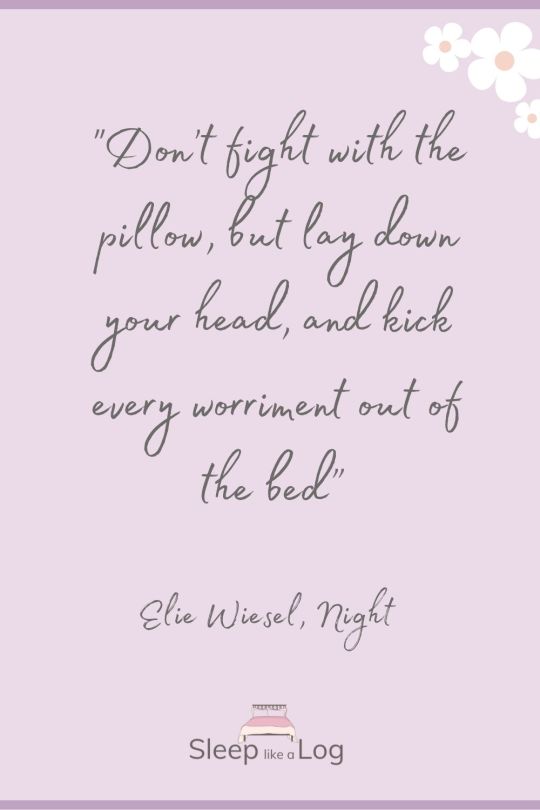 "Don't fight with the
pillow, but lay down
your head, and kick
every worriment out of
the bed"
Elie Wiesel, Night
Sleep like a Log